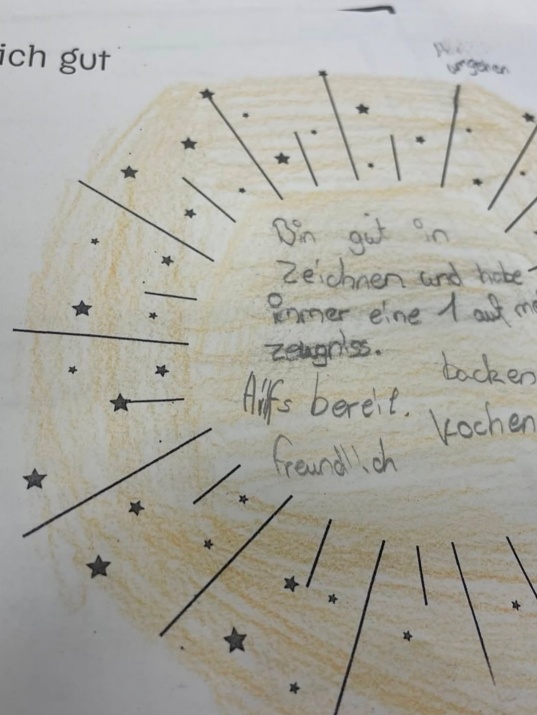 ich gut
umgehen
Bin gut in
Zeichnen und habe
immer eine 1 auf me
zeugniss.
backen
Hilfs bereit.
kochen
freundlich